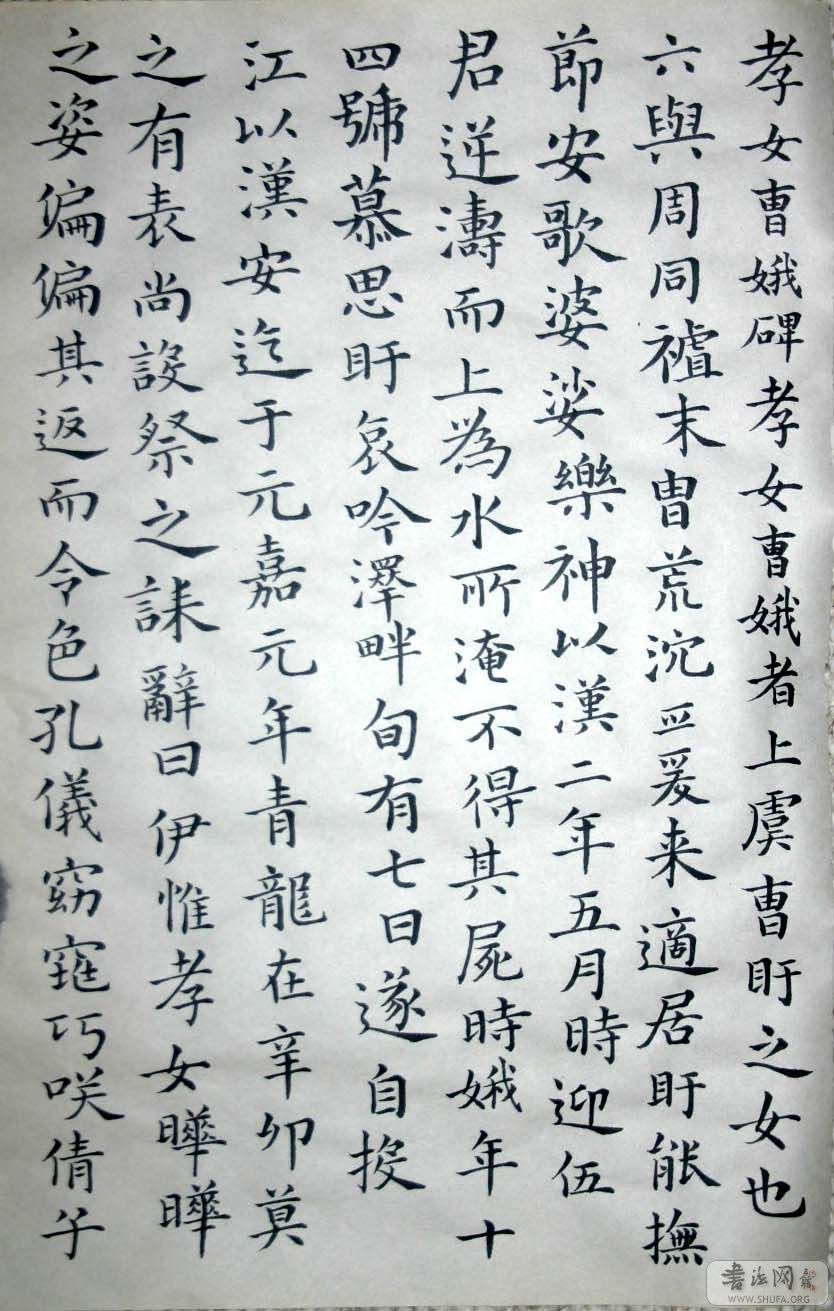 孝女曹娥碑孝女曹娥者上虞曹盱之女也
六與周同禇末胄荒沉亚爰来適居盱能撫
節安歌婆娑樂神以漢二年五月時迎伍
君逆濤而上為水所淹不得其屍時娥年十
四號慕思盱哀吟澤畔旬有七日遂自投
江以漢安迄于元嘉元年青龍在辛卯莫
之有表尚設祭之誄辭曰伊惟孝女曄曄
之姿偏偏其返而令色孔儀窈窕巧咲倩兮
書法网
WWW.SHUFA.ORG